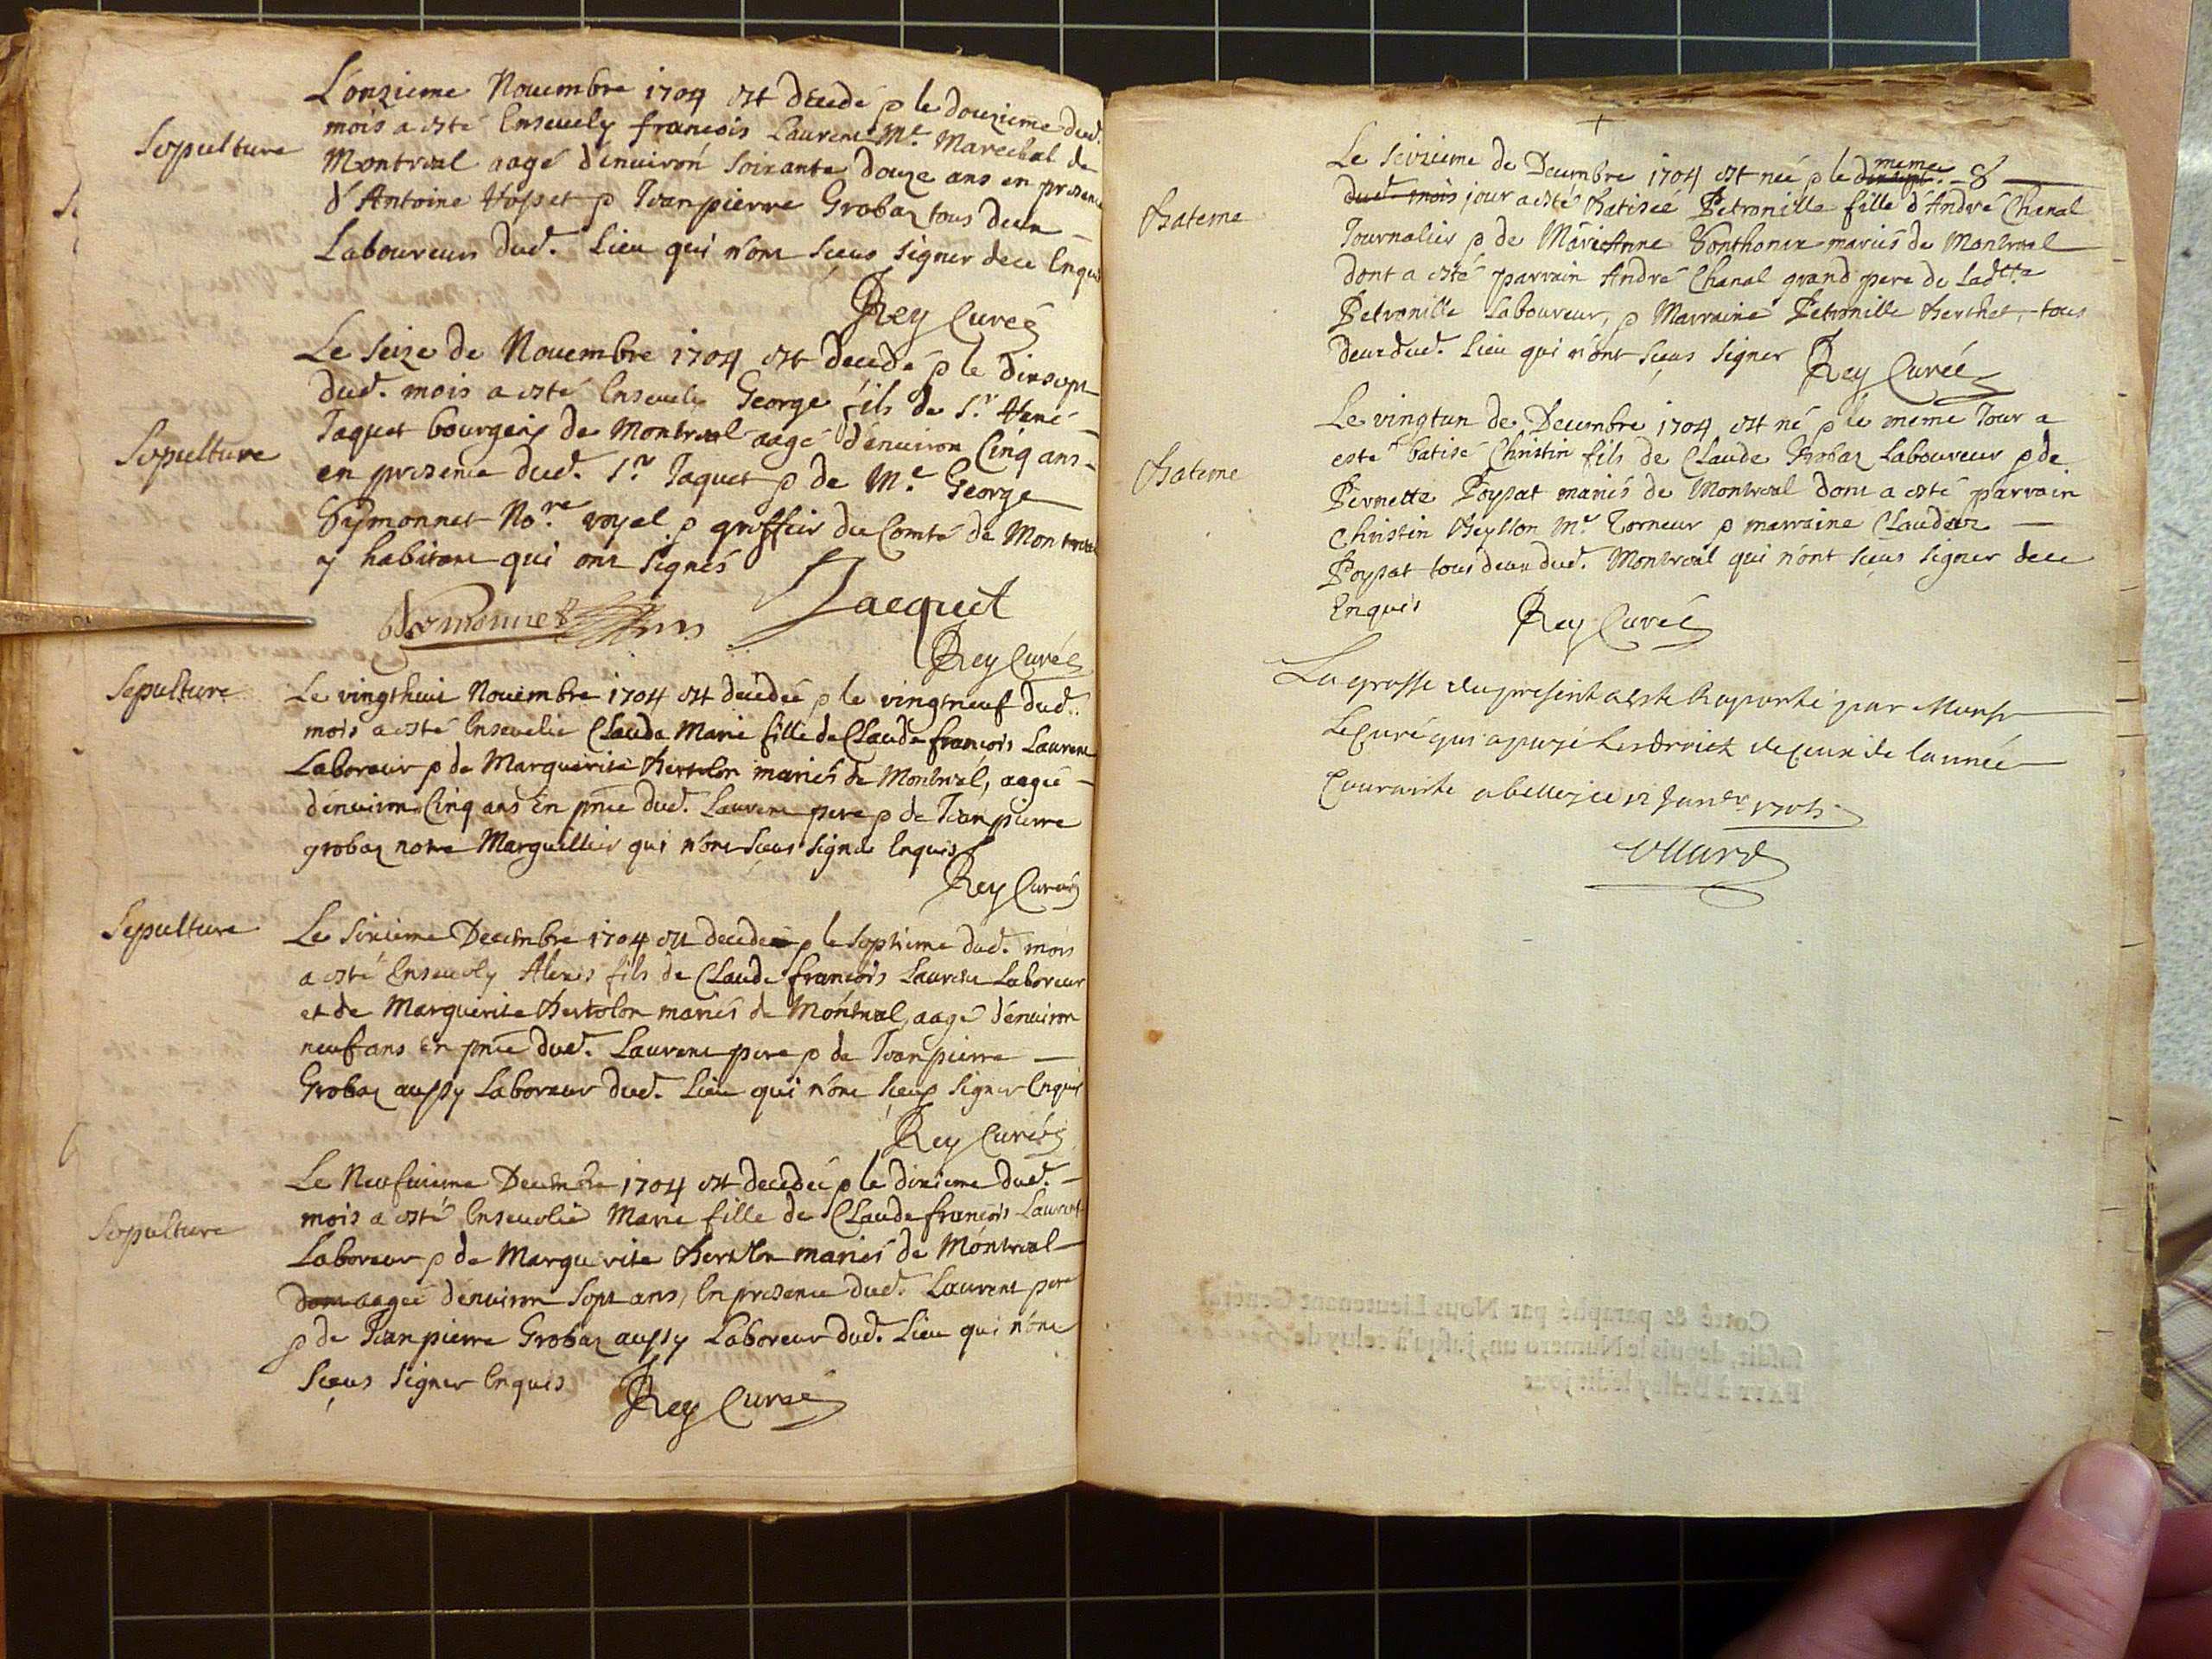 Sepulture
L'onzieme Nouembre 1704 est decedé & le douzieme dud.
mois a esté Enseuely francois Laurent Me. Marechal de
Montreal aagé d'enuiron soixante douze ans en presence
d'Antoine & Jeanpierre Grobaz tous deux
Laboureurs dud. Lieu qui n'ont sceus signer de ce Enquis
Rey Curé
Sepulture
Le seize de Nouembre 1704 est decedé & le dixsept
dud. mois a esté Enseuely George fils de Sr. René
Jaquet bourgeois de Montreal aagé d'enuiron Cinq ans
en presence dud. Sr. Jaquet & de Me. George
Symonnet No.re royal & greffier du Comté de Montreal
y habitant qui ont signés
Symonnet Jacquet
Rey Curé
Sepulture
Le vingthuit Nouembre 1704 est decedeé & le vingtneuf dud.
mois a esté Enseuelie Claude Marie fille de Claude francois Laurent
Laboreur & de Marguerite Bertolon mariés de Montreal, aageé
d'enuiron Cinq ans En pnce dud. Laurent pere & de Jeanpierre
grobaz notre Marguillier qui n'ont sceus signer Enquis
Rey Curé
Sepulture
Le sixieme Decembre 1704 est decedé & le septieme dud. mois
a esté Enseuely Alexis fils de Claude francois Laurent Laboreur
et de Marguerite Bertolon mariés de Montreal, aagé d'enuiron
neuf ans En pnce dud. Laurent pere & de Jeanpierre
Grobaz aussy Laboreur dud. Lieu qui n'ont sceus signer Enquis
Rey Curé
Sepulture
Le Neufuieme Decembre 1704 est decedeé & le dixieme dud.
mois a esté Enseuelie Marie fille de Claude francois Laurent
Laboreur & de Marguerite Bertolon mariés de Montreal
dont aageé d'enuiron sept ans, En presence dud. Laurent pere
& de Jeanpierre Grobaz aussy Laboreur dud. Lieu qui n'ont
sceus signer Enquis
Rey Curé
Bateme
Le seizieme de Decembre 1704 est neé & le meme
dud. mois jour a esté Batiseé Petronille fille d'André Chanal
Journalier & de Marie Anne mariés de Montreal
dont a esté parrain André Chanal grand pere de Ladtte
Petronille Laboureur, & Marraine Petronille Berthet, tous
deux dud. Lieu qui n'ont sceus signer Rey Curé
Bateme
Le vingtun de Decembre 1704 est né & le meme Jour a
esté batisé Christin fils de Claude Grobaz Laboureur & de
Pernette Poysat mariés de Montreal dont a esté parrain
Christin Beysson Me Torneur & marraine Claudaz
Poysat tous deux dud. Montreal qui n'ont sceus signer de ce
Enquis
Rey Curé
La grosse du present a esté Raportée par Monsr
Le Curé qui a payé les droict de ceux de lannée
Courante a belley ce 12 Januer 1705
Cotté & paraphé par Nous Lieutenant General
susdit, depuis le Numero un, jusqu'à celuy de
FAIT à Belley ledit jour